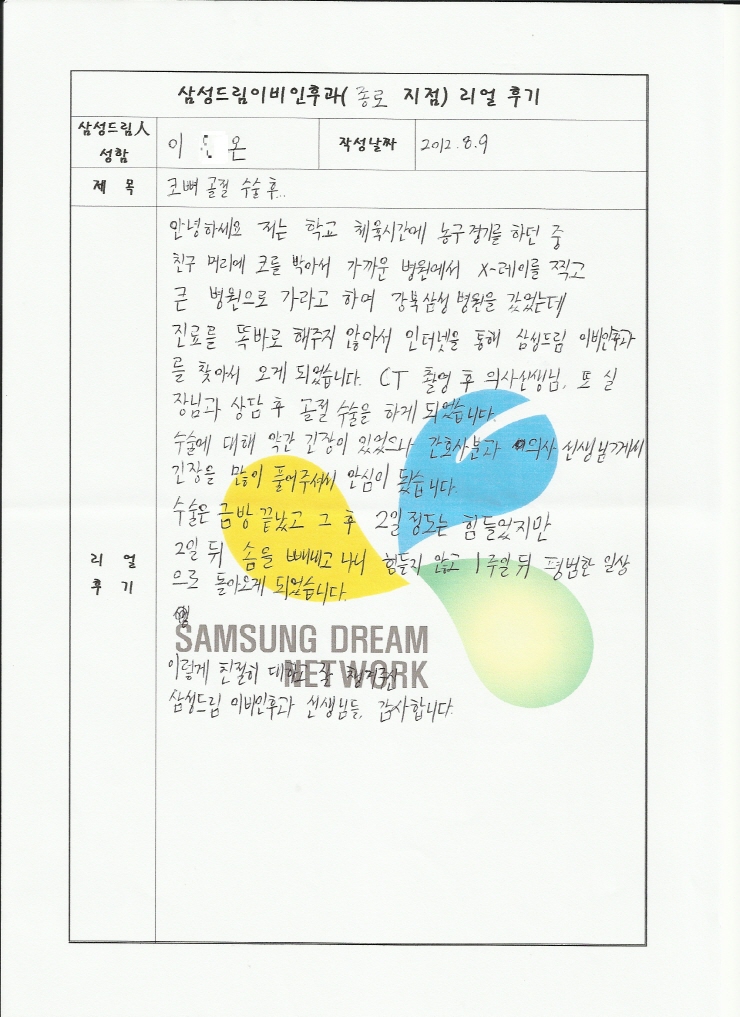 삼성드림이비인후과( 종로 지점) 리얼 후기
삼성드림人 성함
이 온
작성날짜
2012.8.9
제 목
코뼈 골절 수술 후...
리 얼 후 기
안녕하세요 저는 학교 체육시간에 농구경기를 하던 중
친구 머리에 코를 박아서 가까운 병원에서 X-레이를 찍고
큰 병원으로 가라고 하여 강북삼성병원을 갔었는데
진료를 똑바로 해주지 않아서 인터넷을 통해 삼성드림 이비인후과
를 찾아서 오게 되었습니다. CT 촬영 후 의사선생님, 또 실
장님과 상담 후 골절 수술을 하게 되었습니다.
수술에 대해 약간 긴장이 있었으나 간호사분과 의사 선생님께서
긴장을 많이 풀어주셔서 안심이 됐습니다.
수술은 금방 끝났고 그 후 2일 정도는 힘들었지만
2일 뒤 솜을 빼내고 나니 힘들지 않고 1주일 뒤 평범한 일상
으로 돌아오게 되었습니다.
SAMSUNG DREAM
NETWORK
이렇게 친절히 대하고 잘
삼성드림 이비인후과 선생님들, 감사합니다.